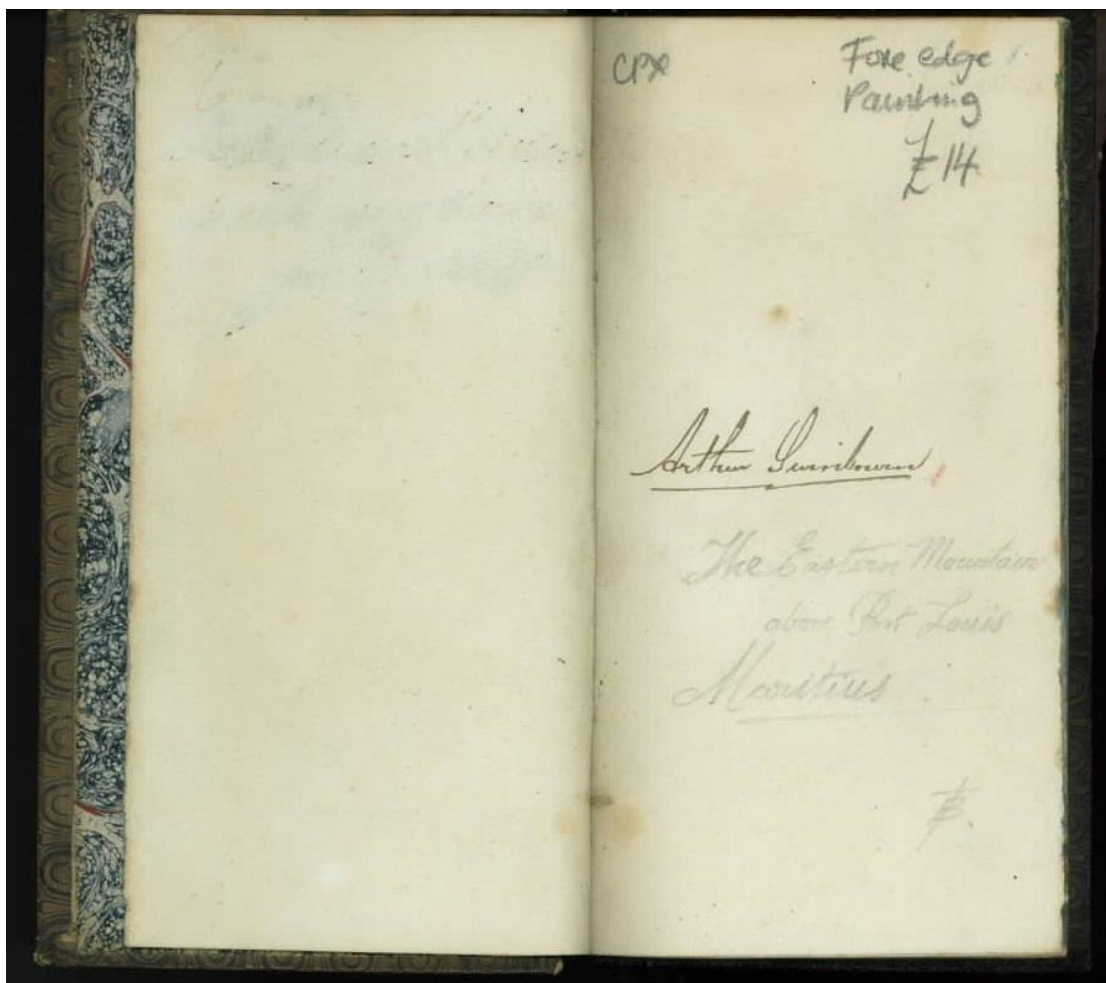 CPX
Fore edge
Painting
£14
Arthur
The Eastern Mountain
above Port Louis
Mauritius